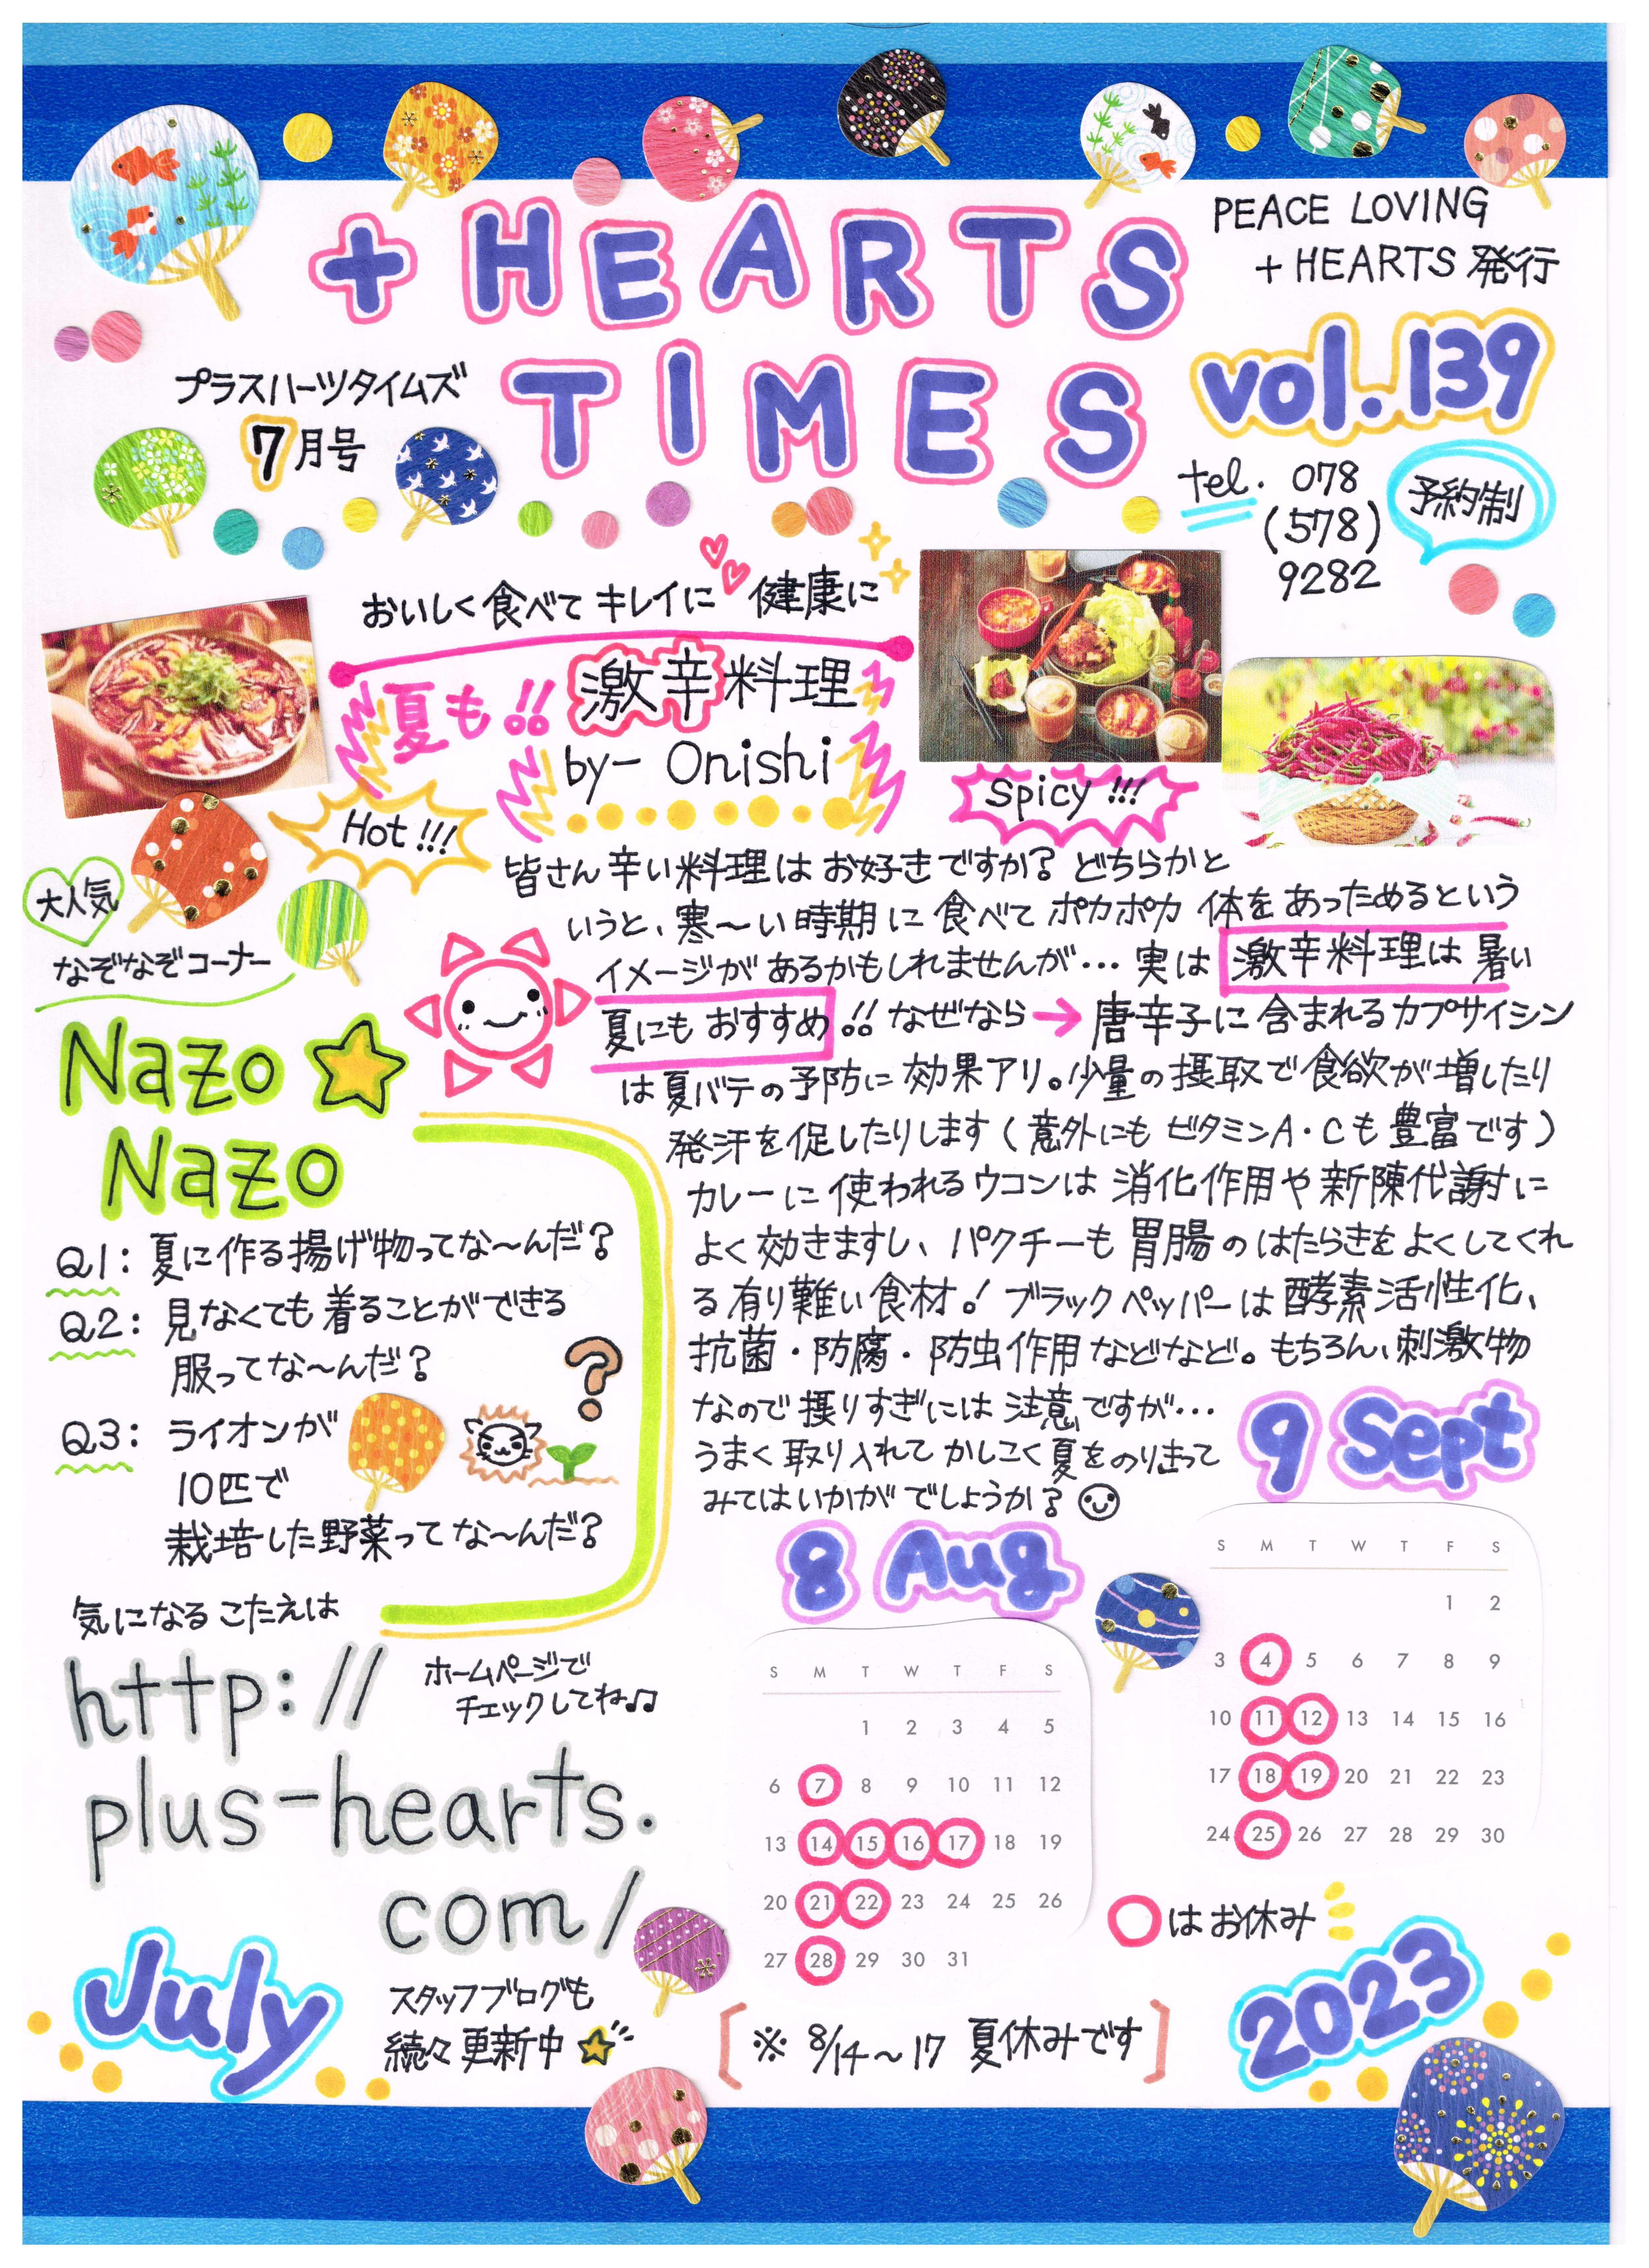 + HEARTS
TIMES
PEACE LOVING
+ HEARTS 発行
vol.139
プラスハーツタイムズ
7月号
tel. 078
(578)
9282
予約制
おいしく食べてキレイに健康に
夏も!! 激辛料理
by- Onishi
Hot!!!
Spicy!!!
皆さん辛い料理はお好きですか？どちらかと
いうと、寒〜い時期に食べてポカポカ体をあっためるという
イメージがあるかもしれませんが…実は激辛料理は暑い
夏にもおすすめ!! なぜなら→唐辛子に含まれるカプサイシン
は夏バテの予防に効果アリ。少量の摂取で食欲が増したり
発汗を促したりします(意外にもビタミンA・Cも豊富です)
カレーに使われるウコンは消化作用や新陳代謝に
よく効きますし、パクチーも胃腸のはたらきをよくしてくれ
る有り難い食材！ブラックペッパーは酵素活性化、
抗菌・防腐・防虫作用などなど。もちろん、刺激物
なので摂りすぎには注意ですが…
うまく取り入れてかしこく夏をのりきって
みてはいかがでしょうか？
大人気
なぞなぞコーナー
Nazo
Nazo
Q1: 夏に作る揚げ物ってな〜んだ？
Q2: 見なくても着ることができる
服ってな〜んだ？
Q3: ライオンが
10匹で
栽培した野菜ってな〜んだ？
?
気になるこたえは
http://
plus-hearts.
com/
ホームページで
チェックしてね♫
スタッフブログも
続々更新中☆
July
8 Aug
S M T W T F S
1 2 3 4 5
6 7 8 9 10 11 12
13 14 15 16 17 18 19
20 21 22 23 24 25 26
27 28 29 30 31
9 Sept
S M T W T F S
1 2
3 4 5 6 7 8 9
10 11 12 13 14 15 16
17 18 19 20 21 22 23
24 25 26 27 28 29 30
○はお休み
[※ 8/14〜17 夏休みです]
2023